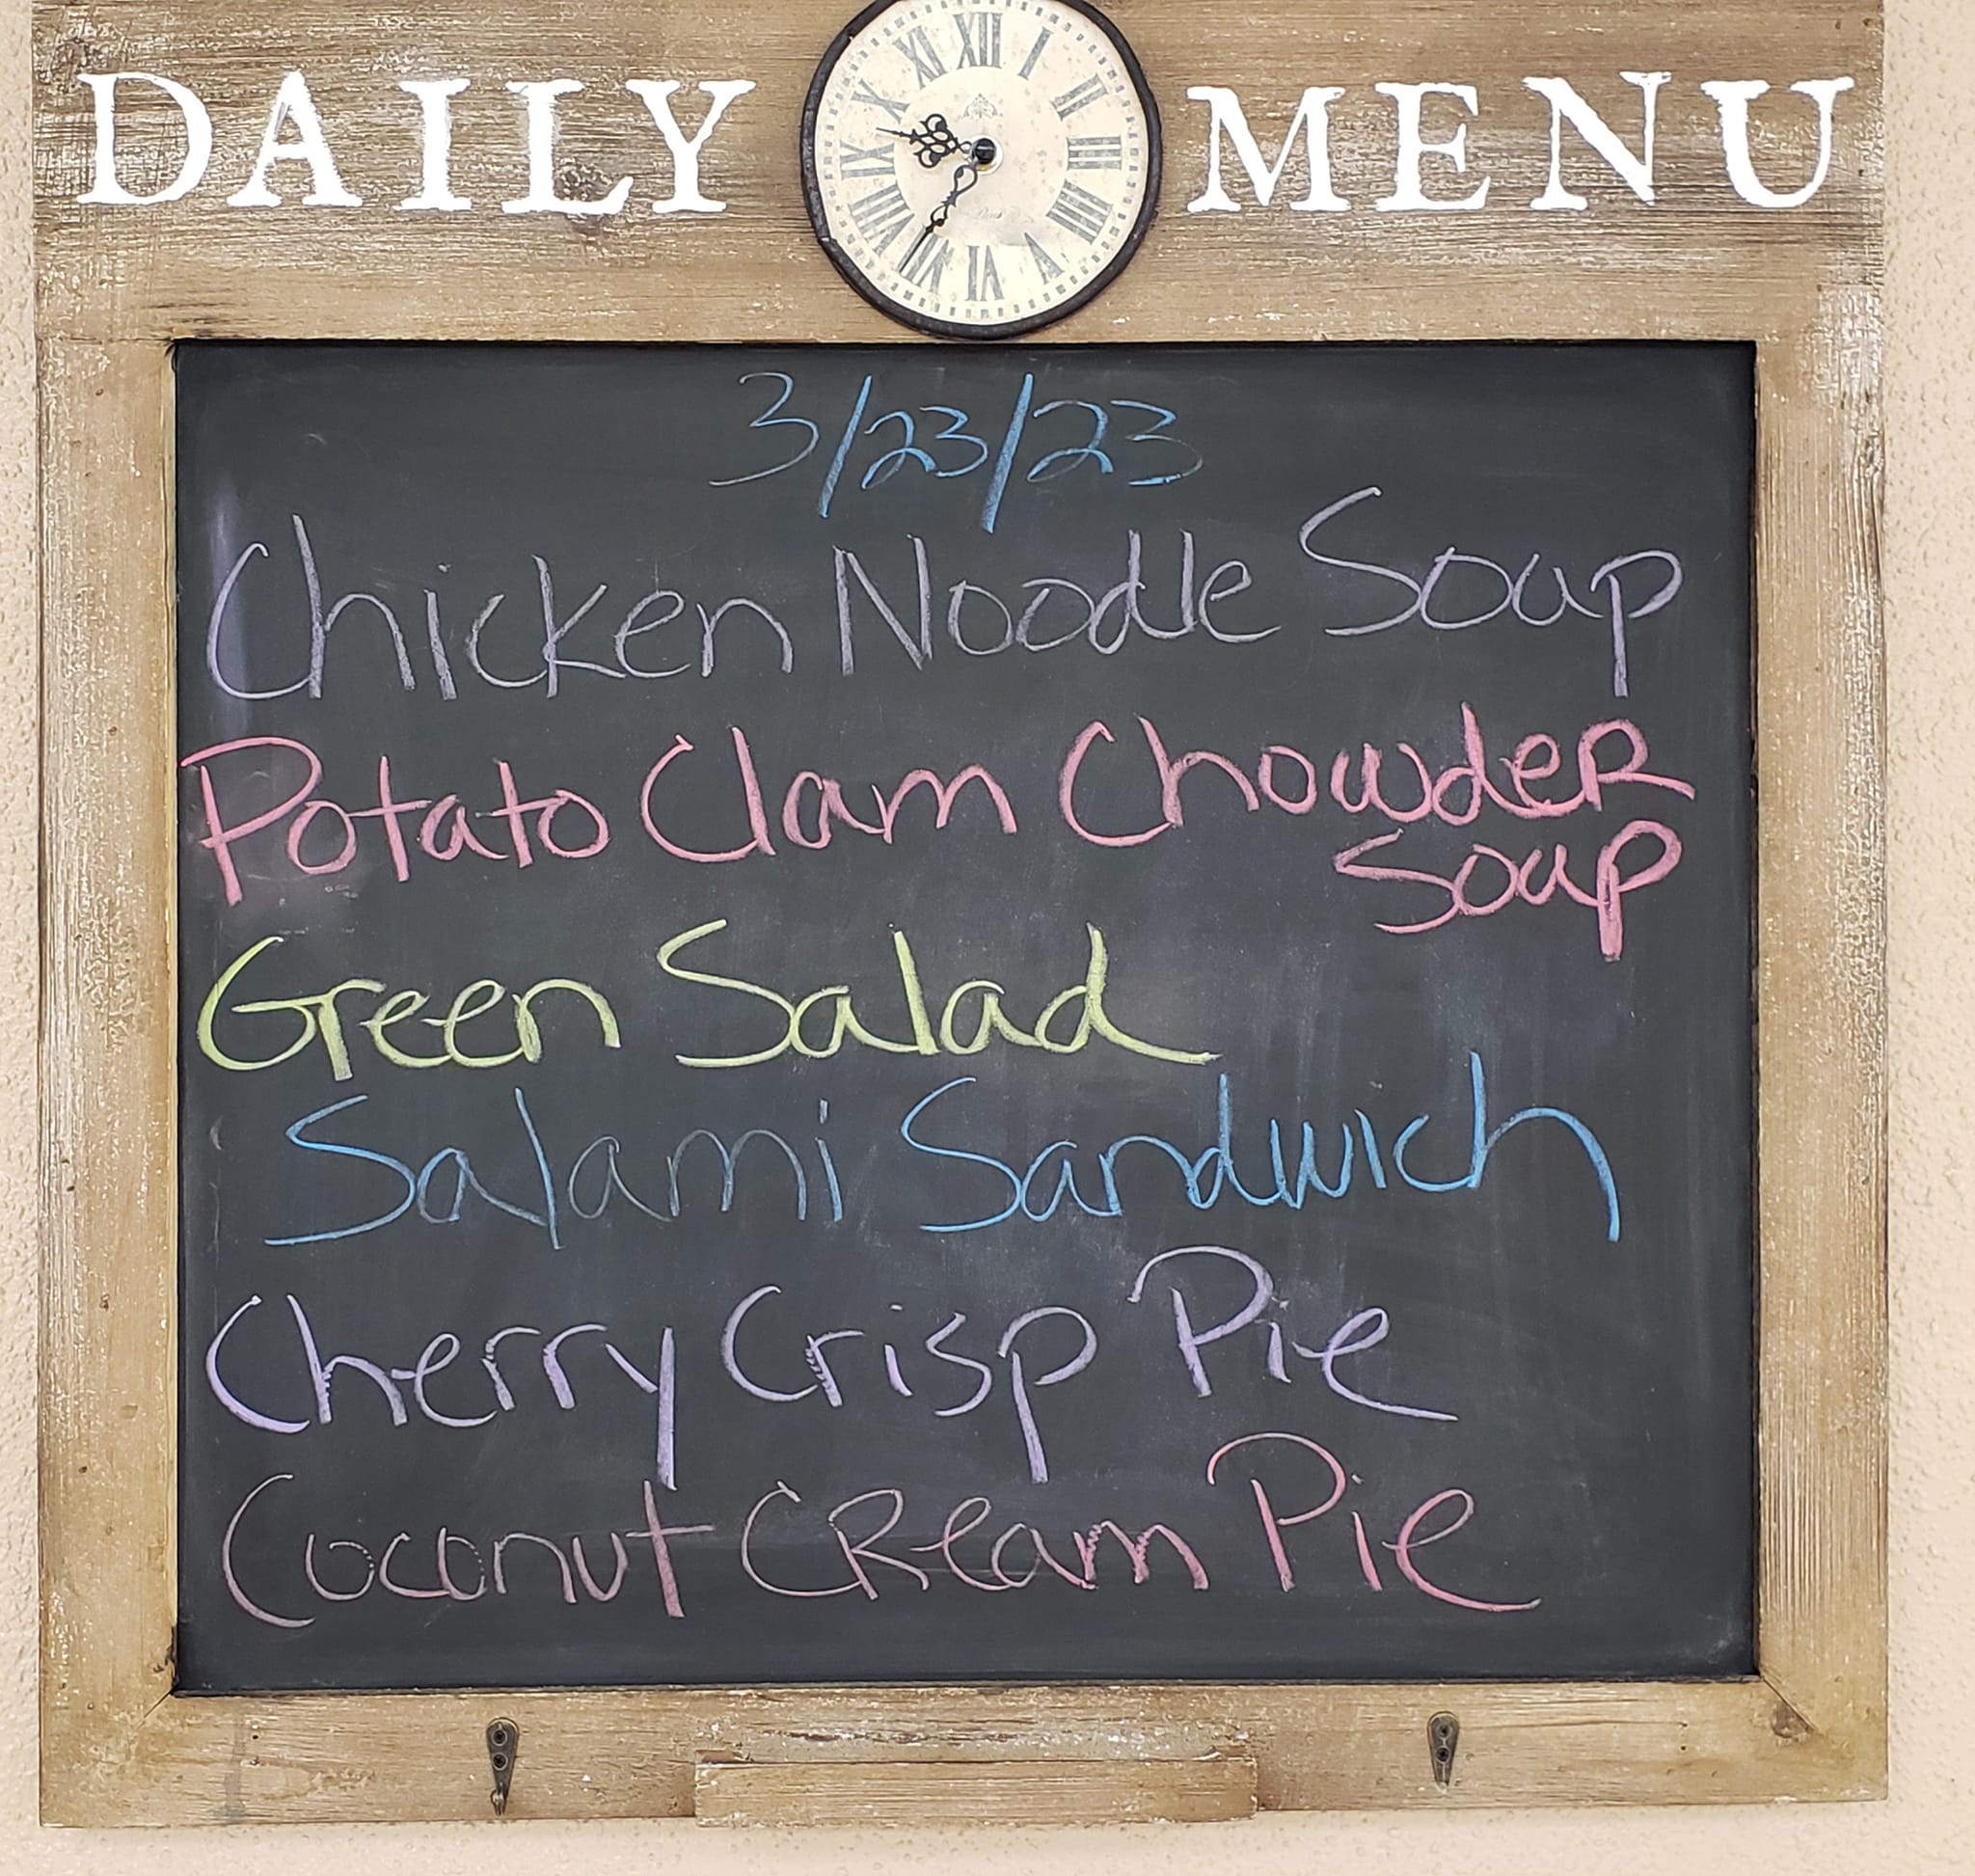 DAILY MENU
XII I II III IIII V VI VII VIII IX X XI
3/23/23
Chicken Noodle Soup
Potato Clam Chowder
Soup
Green Salad
Salami Sandwich
Cherry Crisp Pie
Coconut Cream Pie